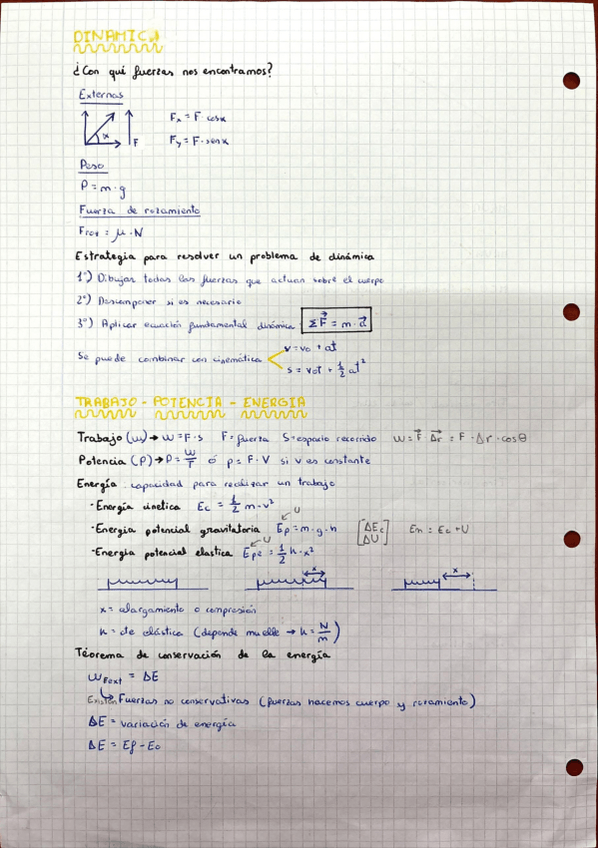 DINAMICA
¿Con qué fuerzas nos encontramos?
Externas
x F Fx = F cosα
Fy = F · senα
Peso
P = m · g
Fuerza de rozamiento
Froz = μ · N
Estrategia para resolver un problema de dinámica
1º) Dibujar todas las fuerzas que actuan sobre el cuerpo
2º) Descomponer si es necesario
3º) Aplicar ecuación fundamental dinámica ΣF⃗ = m · a⃗
Se puede combinar con cinemática
v = v0 + at
s = v0t + 1/2 at²
TRABAJO - POTENCIA - ENERGIA
Trabajo (W) → W = F · s F = fuerza S = espacio recorrido W = F⃗ Δr⃗ = F · Δr · cosθ
Potencia (P) → P = W/T ó p = F · V si v es constante
Energía capacidad para realizar un trabajo
· Energía cinetica Ec = 1/2 m · v²
U
· Energia potencial gravitatoria Ep = m · g · h [ΔEc ΔU] Em = Ec + U
U
· Energia potencial elastica Epe = 1/2 k · x²
x x
x = alargamiento o compresión
k = cte elástica (depende muelle → k = N/m)
Teorema de conservación de la energía
WFext = ΔE
Existen Fuerzas no conservativas (fuerzas hacemos cuerpo y rozamiento)
ΔE = variación de energía
ΔE = Ef - E0